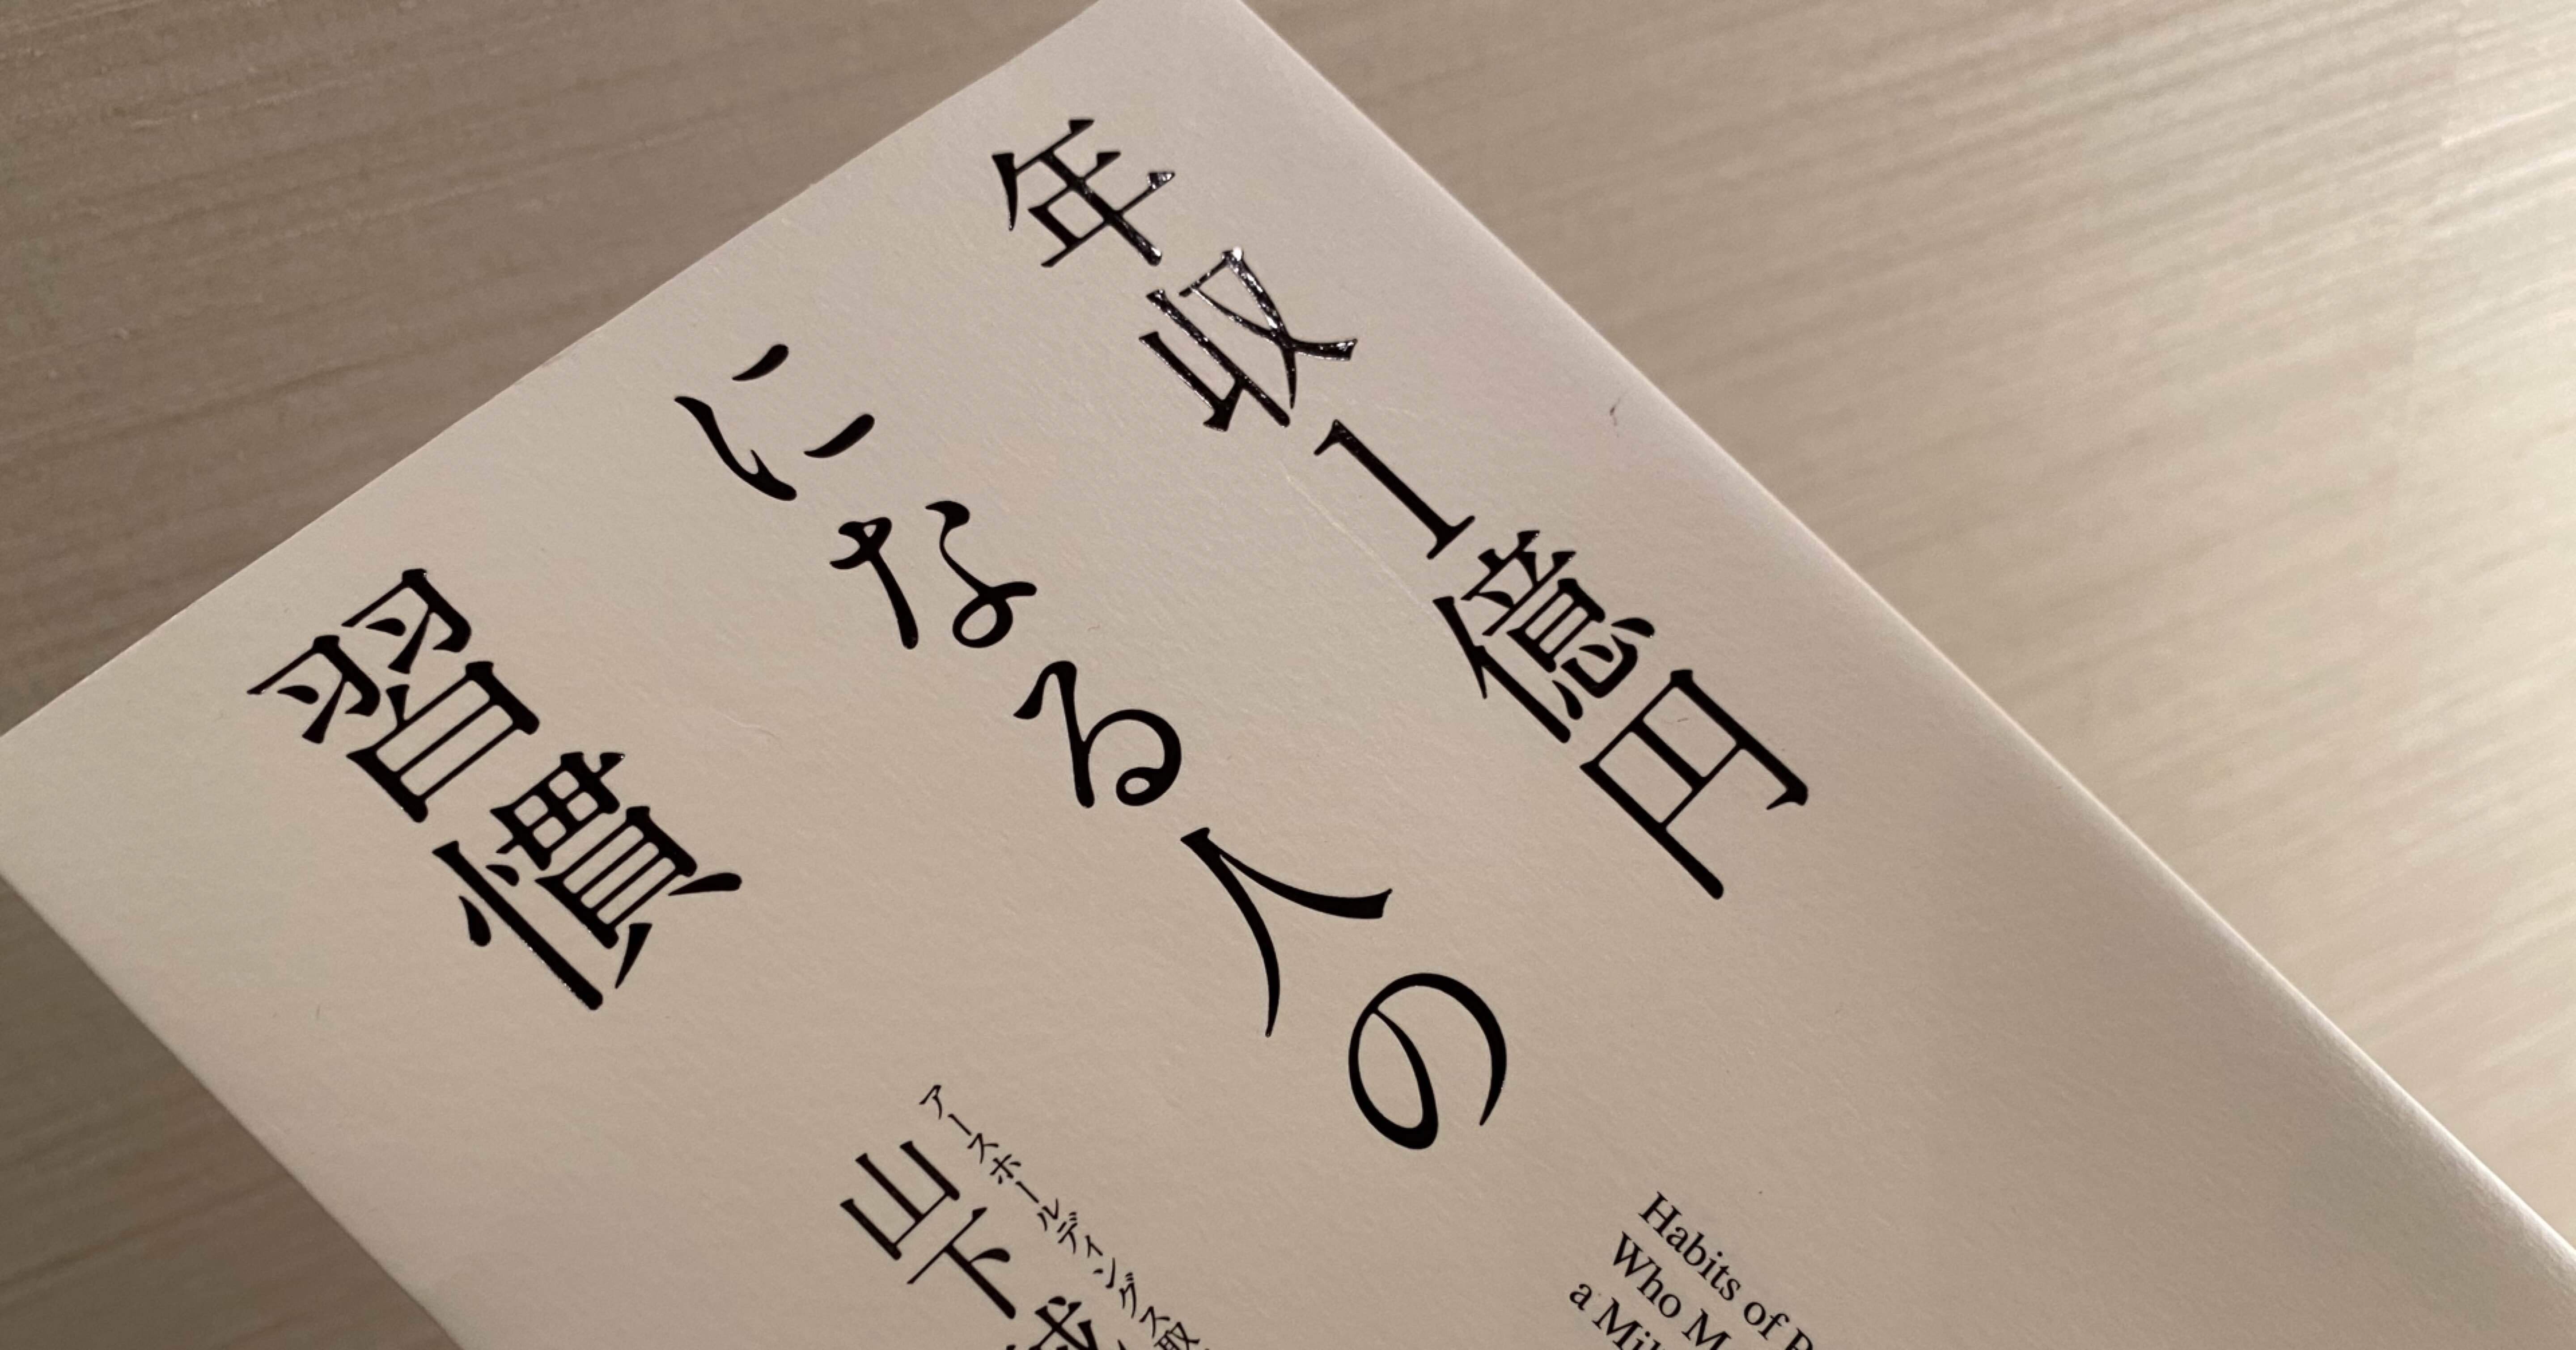 年収1億円
になる人の
習慣
アースホールディングス取
山下
Habits of
Who
a